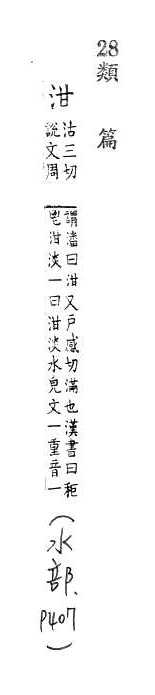 28類篇
泔 沽三切
說文周
謂潘曰泔又戶感切滿也漢書曰秬
鬯泔淡一曰泔淡水皃文一重音一
(水部、P407)